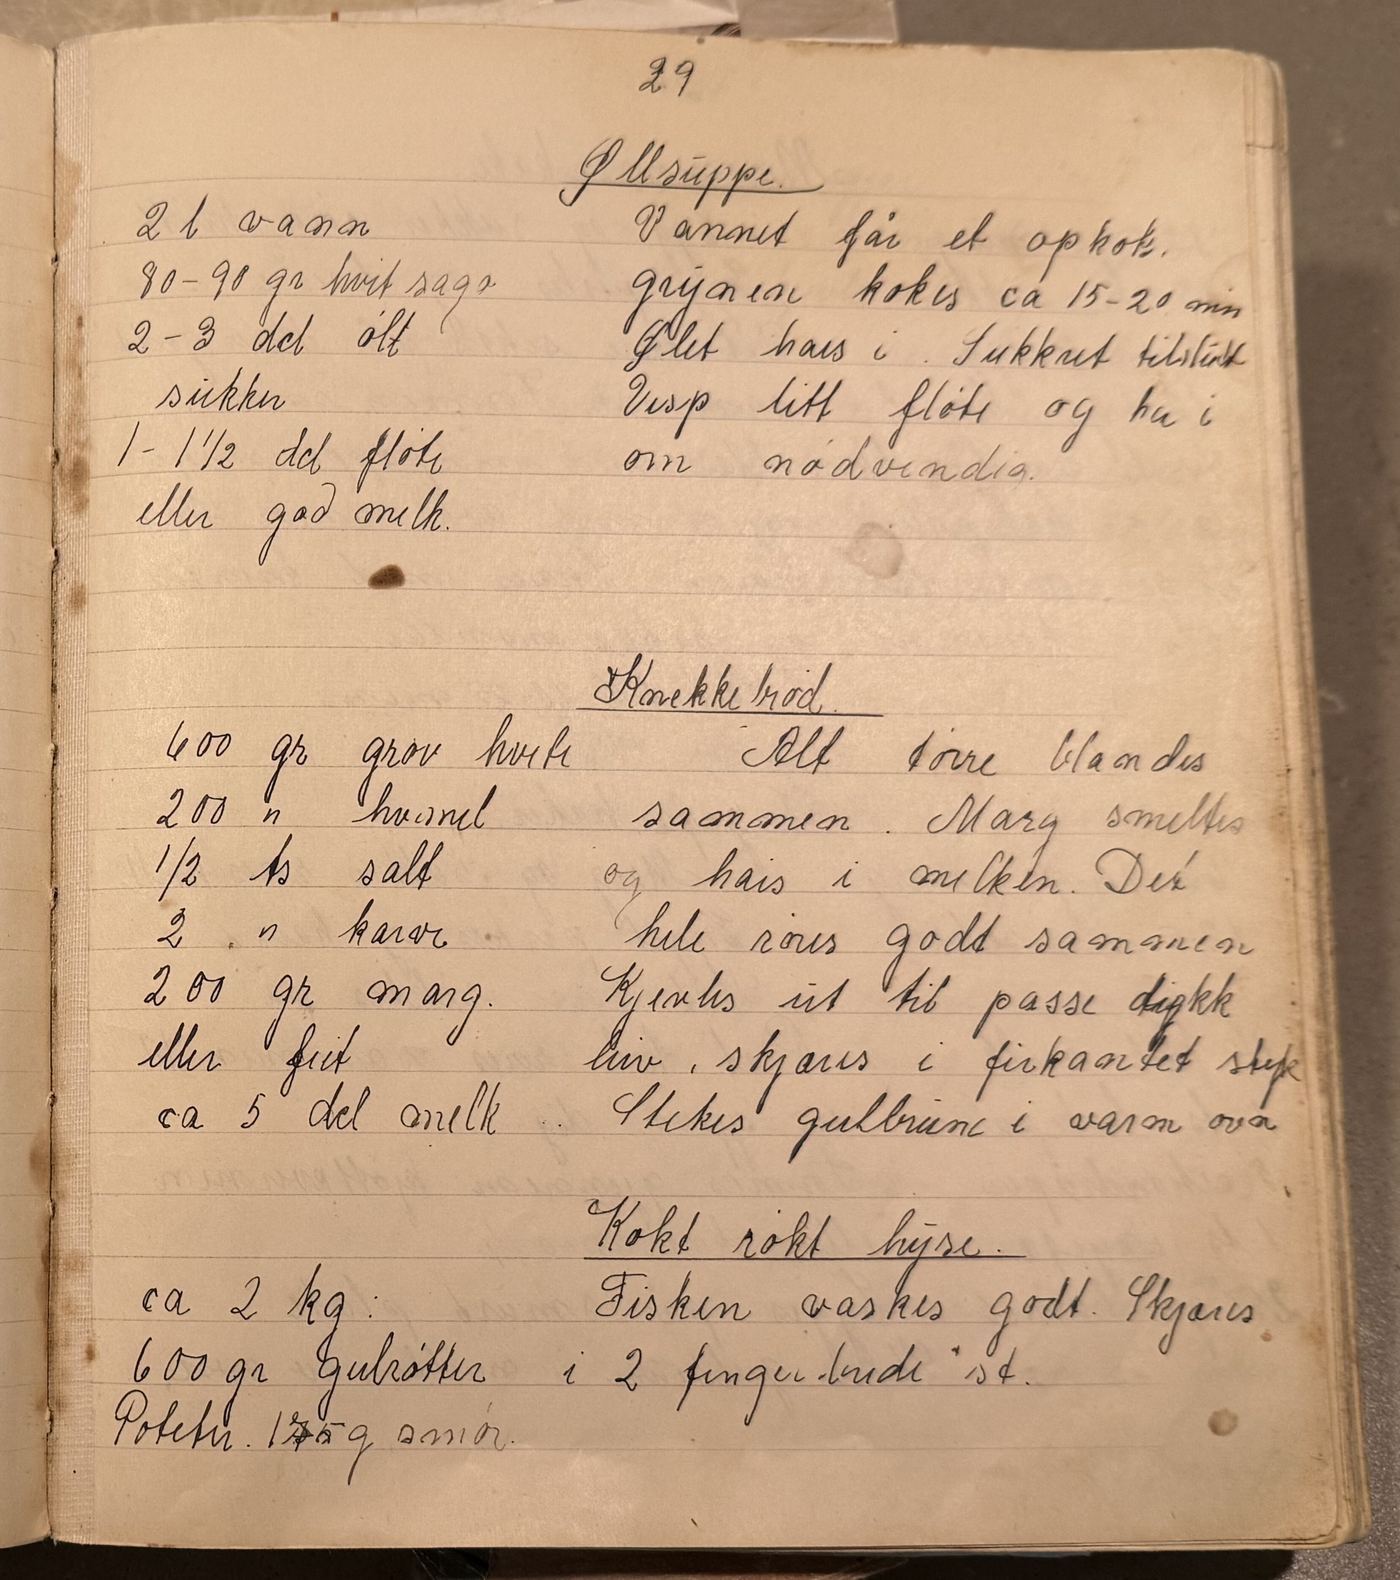 29
Øllsuppe.
2 l vann
80-90 gr hvit sago
2-3 del ølt
sukker
1-1 1/2 del fløte
eller god melk.
Vannet får et opkok.
grynen kokes ca 15-20 min
Ølet haes i. Sukkret tilslutt
Visp litt fløte og ha i
om nødvendig.
Knekkebrød.
600 gr grov hvete
200 " hvemel
1/2 ts salt
2 " karve
200 gr marg.
eller feit
ca 5 del melk
Alt tørre blandes
sammen. Marg smeltes
og haes i melken. Det
hele røres godt sammen
Kjevles ut til passe
leiv, skjæres i firkantet styk
Stekes gulbrune i varm ovn
Kokt røkt hyse.
ca 2 kg:
600 gr gulrøtter
Poteter. g smør.
Fisken vaskes godt. Skjæres
i 2 fingerbrede st.